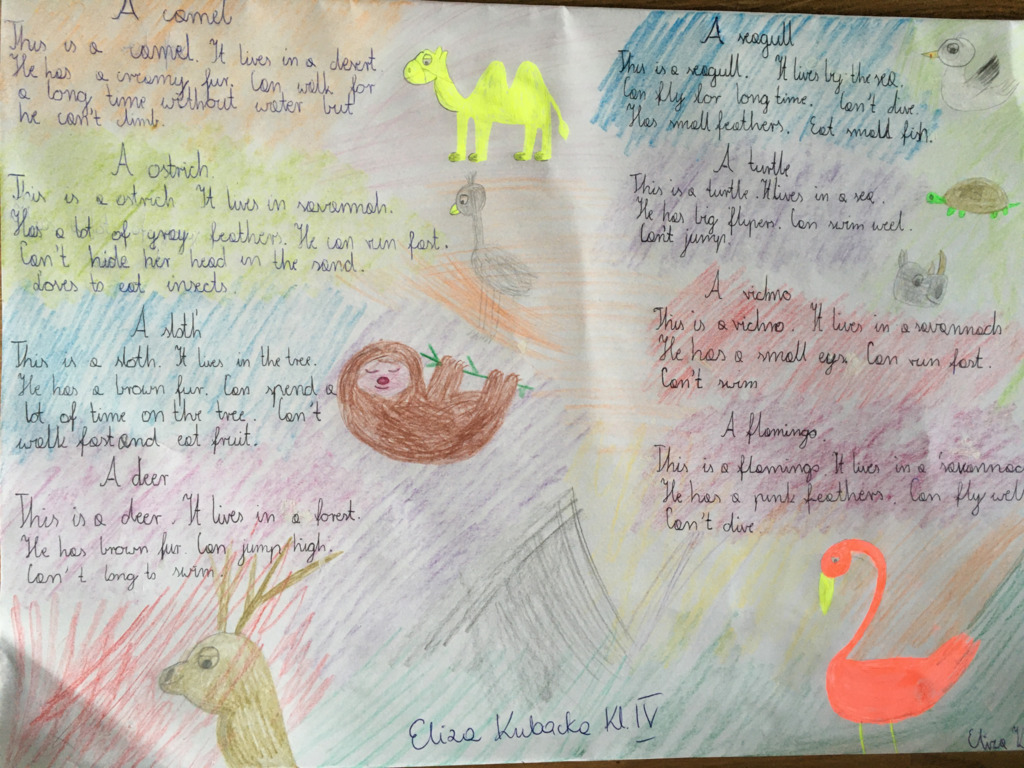 A camel
This is a camel. It lives in a desert.
He has a creamy fur. Can walk for
a long time without water but
he can't climb.
A ostrich
This is a ostrich It lives in savannah.
Has a lot of gray feathers. He can run fast.
Can't hide her head in the sand.
Loves to eat insects.
A sloth
This is a sloth. It lives in the tree.
He has a brown fur. Can spend a
lot of time on the tree. Can't
walk fast and eat fruit.
A deer
This is a deer. It lives in a forest.
He has brown fur. Can jump high.
Can't long to swim.
A seagull
This is a seagull. It lives by the sea.
Can fly for long time. Can't dive.
Has small feathers. Eat small fish.
A turtle
This is a turtle. It lives in a sea.
He has big flipen. Can swim weel.
Can't jump.
A richno
This is a richno. It lives in a savannach
He has a small eys. Can run fast.
Can't swim
A flamingo
This is a flamingo. It lives in a savannac
He has a punk feathers. Can fly well
Can't dive.
Eliza Kubacka Kl. IV
Eliza K